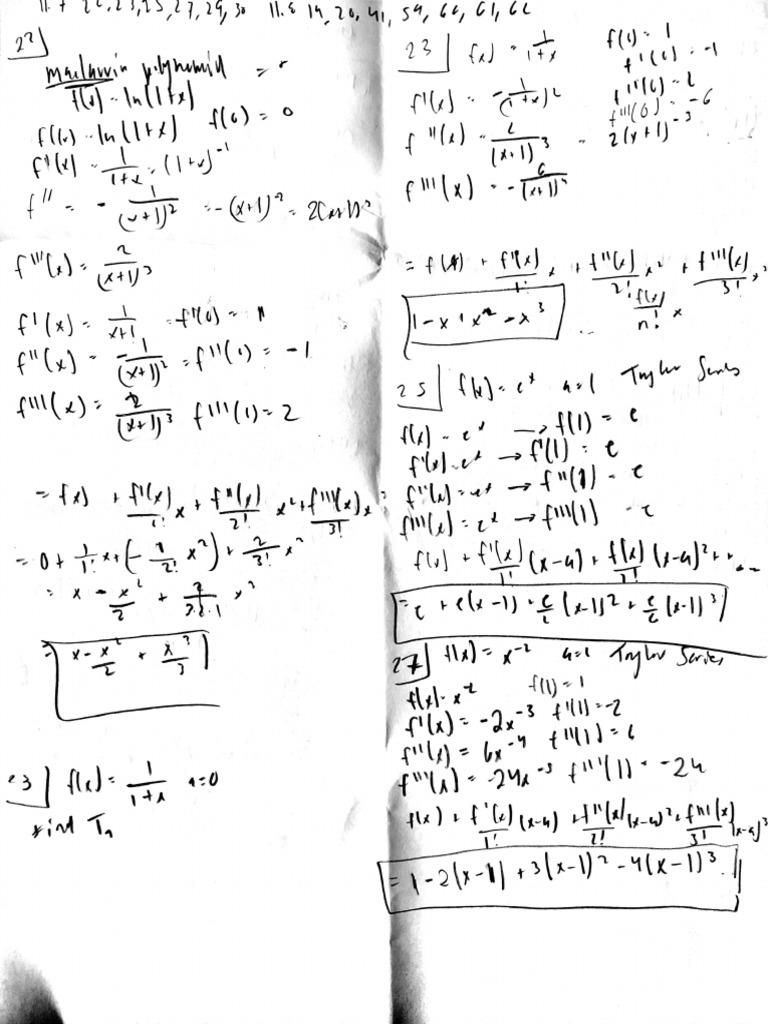 22, 23, 25, 27, 29, 30 11.8 19, 20, 41, 59, 60, 61, 62
22
Maclaurin polynomial
f(x) = ln(1+x)
f(x) = ln(1+x) f(0) = 0
f'(x) = 1/(1+x) = (1+x)^-1
f'' = - 1/(x+1)^2 = -(x+1)^-2
f'''(x) = 2/(x+1)^3
f'(x) = 1/(x+1) = f'(0) = 1
f''(x) = -1/(x+1)^2 = f''(0) = -1
f'''(x) = 2/(x+1)^3 f'''(0) = 2
= f(x) + f'(x)/1! x + f''(x)/2! x^2 + f'''(x)/3! x^3
= 0 + 1/1! x + (- 1/2! x^2) + 2/3! x^3
= x - x^2/2 + 2/3·2·1 x^3
= x - x^2/2 + x^3/3
23 f(x) = 1/(1+x) a=0
find Tn
23 f(x) = 1/(1+x) f(0) = 1
f'(0) = -1
f'(x) = - 1/(1+x)^2 f''(0) = 2
f'''(0) = -6
f''(x) = 2/(x+1)^3 = 2(x+1)^-3
f'''(x) = - 6/(x+1)^4
= f(x) + f'(x)/1! x + f''(x)/2! x^2 + f'''(x)/3! x^3
f(x)/n! x
1 - x + x^2 - x^3
25 f(x) = e^x a=1 Taylor Series
f(x) = e^x → f(1) = e
f'(x) = e^x → f'(1) = e
f''(x) = e^x → f''(1) = e
f'''(x) = e^x → f'''(1) = e
f(x) + f'(x)/1! (x-a) + f(x)/2! (x-a)^2 + ...
= e + e(x-1) + e/2 (x-1)^2 + e/6 (x-1)^3
27 f(x) = x^-2 a=1 Taylor Series
f(x) = x^-2 f(1) = 1
f'(x) = -2x^-3 f'(1) = -2
f''(x) = 6x^-4 f''(1) = 6
f'''(x) = -24x^-5 f'''(1) = -24
f(x) + f'(x)/1! (x-a) + f''(x)/2! (x-a)^2 + f'''(x)/3! (x-a)^3
= 1 - 2(x-1) + 3(x-1)^2 - 4(x-1)^3